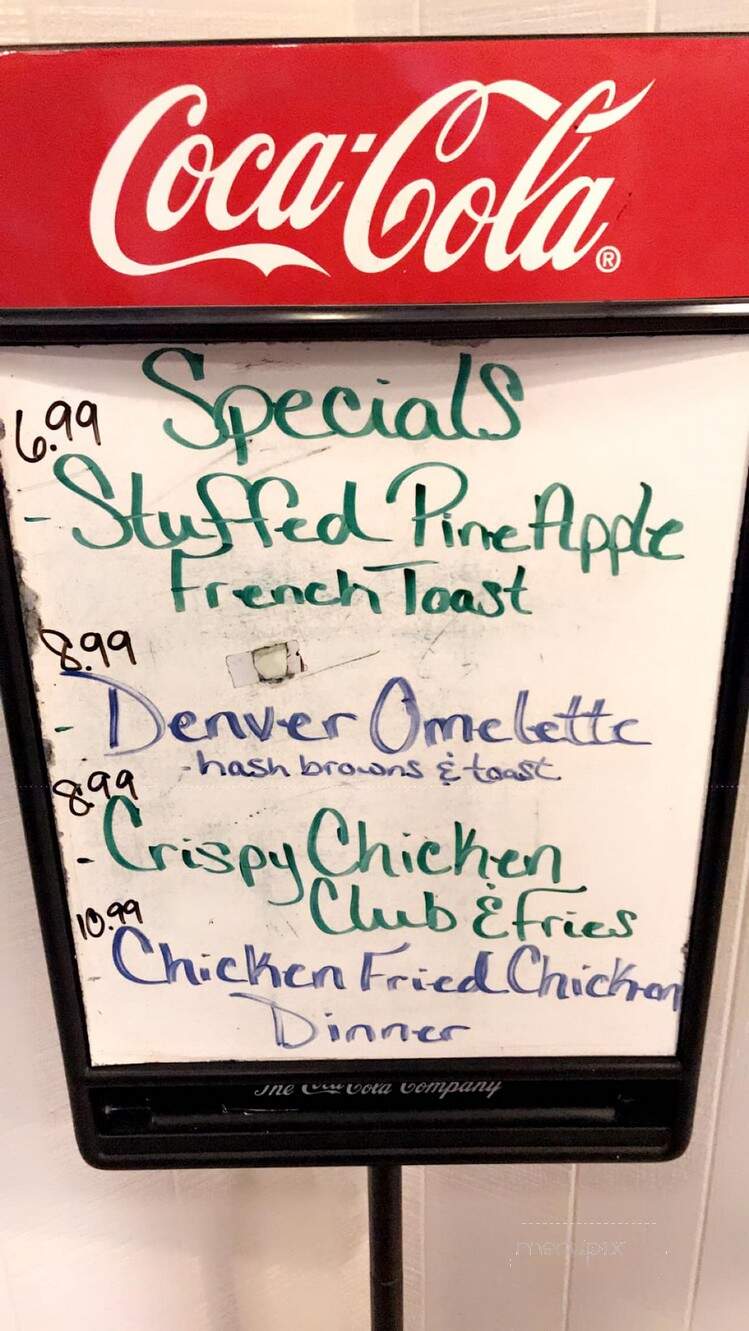 Coca-Cola®
Specials
6.99
- Stuffed PineApple
French Toast
8.99
- Denver Omelette
- hash browns & toast
8.99
- Crispy Chicken
Club & Fries
10.99
- Chicken Fried Chicken
Dinner
The Coca-Cola Company
menupix